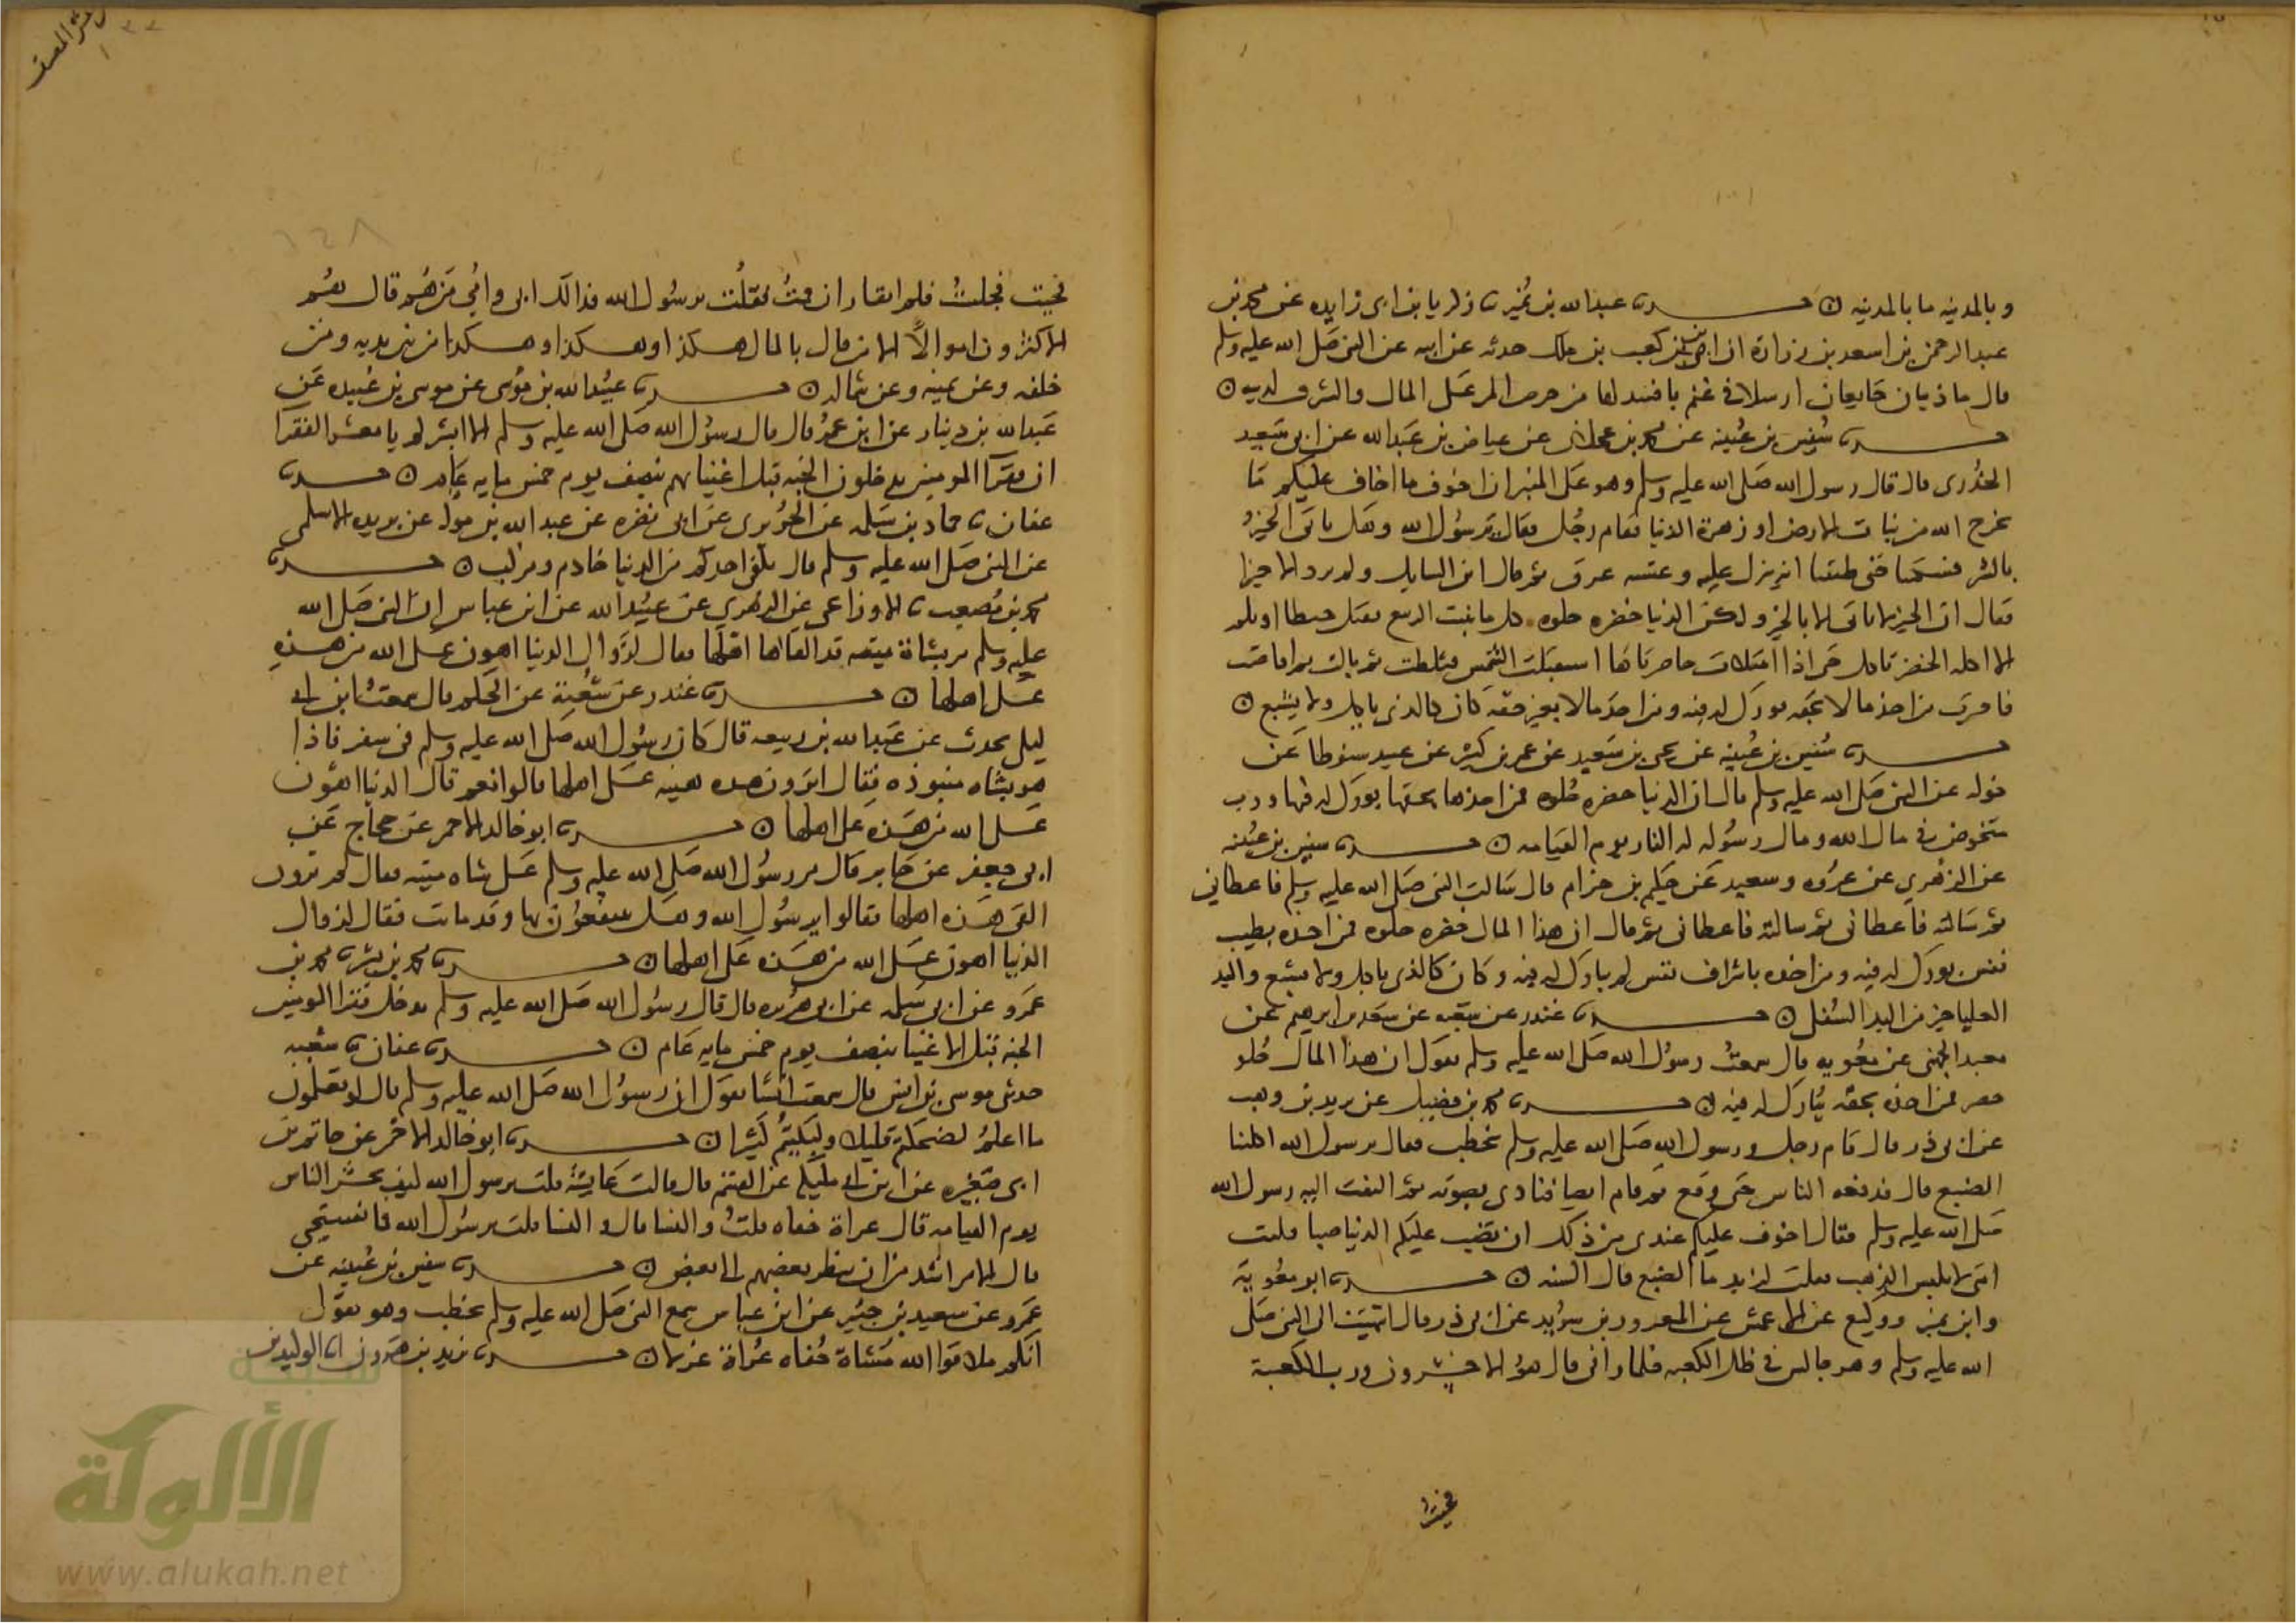 وبالمدينه ما بالمدينه ن حدثنا عبدالله بن نمير ثنا زكريا بن ابى زايده عن محمد بن
عبد الرحمن بن اسعد بن زرارة ان ابن كعب بن ملك حدثه عن ابيه عن النبى صلى الله عليه وسلم
قال ما ذيبان جايعان ارسلا في غنم بافسد لها من حرص المر على المال والشرف لدينه ن
حدثنا سفين بن عيينه عن محمد بن عجلان عن عياض بن عبدالله عن ابى سعيد
الخدرى قال قال رسول الله صلى الله عليه وسلم وهو على المنبر ان اخوف ما اخاف عليكم ما
يخرج الله من نبات الارض او زهرة الدنيا فقام رجل فقال يرسول الله وهل ياتى الخير
بالشر فسكت حتى ظننا انه ينزل عليه وغشيه عرق ثم قال اين السايل ولم يرد الا خيرا
فقال ان الخير لا ياتى الا بالخير ولكن الدنيا خضره حلوه كل ما ينبت الربيع يقتل حبطا او يلم
الا اكله الخضر تاكل حتى اذا امتلات خاصرتاها استقبلت الشمس فثلطت ثم بالت ثم افاضت
فاجترت من اخذ مالا بحقه بورك له فيه ومن اخذ مالا بغير حقه كان كالذى ياكل ولا يشبع ن
حدثنا سفين بن عيينه عن يحيى بن سعيد عن عمر بن كثير عن عبيد سنوطا عن
خوله عن النبى صلى الله عليه وسلم قال ان الدنيا خضره حلوه فمن اخذها بحقها بورك له فيها ورب
متخوض في مال الله ومال رسوله له النار يوم القيامه ن حدثنا سفين بن عيينه
عن الزهري عن عروه وسعيد عن حكيم بن حزام قال سالت النبى صلى الله عليه وسلم فاعطاني
ثم سالته فاعطانى ثم سالته فاعطانى ثم قال ان هذا المال خضره حلوه فمن اخذه بطيب
نفس بورك له فيه ومن اخذه باشراف نفس لم يبارك له فيه وكان كالذى ياكل ولا يشبع واليد
العليا خير من اليد السفلى ن حدثنا غندر عن شعبه عن سعد بن ابرهيم عن
معبد الجهنى عن معويه قال سمعت رسول الله صلى الله عليه وسلم يقول ان هذا المال حلو
خضر فمن اخذه بحقه يبارك له فيه ن حدثنا محمد بن فضيل عن يزيد بن وهب
عن ابى ذر قال قام رجل ورسول الله صلى الله عليه وسلم يخطب فقال يرسول الله اكلتنا
الضبع قال فدفعه الناس حتى وقع ثم قام ايضا فنادى بصوته ثم التفت اليه رسول الله
صلى الله عليه وسلم فقال اخوف عليكم عندى من ذلك ان تصب عليكم الدنيا صبا فليت
امتى لا يلبس الذهب فقلت لزيد ما الضبع قال السنه ن حدثنا ابو معويه
وابن نمير ووكيع عن الاعمش عن المعرور بن سويد عن ابى ذر قال انتهيت الى النبى صلى
الله عليه وسلم وهو جالس في ظل الكعبه فلما رانى قال هم الاخسرون ورب الكعبة
فجيت
فجيت فجلست فلم اتقار ان قمت فقلت يرسول الله فداك ابى وامي من هم قال هم
الاكثرون اموالا الا من قال بالمال هكذا وهكذا وهكذا من بين يديه ومن
خلفه وعن يمينه وعن شماله ن حدثنا عبيدالله بن موسى عن موسى بن عبيده عن
عبدالله بن دينار عن ابن عمر قال قال رسول الله صلى الله عليه وسلم الا ابشركم يا معشر الفقرا
ان فقرآ المومنين يدخلون الجنه قبل اغنيائهم بنصف يوم خمس مايه عام ن حدثنا
عفان ثنا حماد بن سلمه عن الجريرى عن ابى نضره عن عبد الله بن موله عن بريده الاسلمى
عن النبى صلى الله عليه وسلم قال يكفى احدكم من الدنيا خادم ومركب ن حدثنا
محمد بن مصعب ثنا الاوزاعى عن الزهرى عن عبيدالله عن ابن عباس ان النبى صلى الله
عليه وسلم مر بشاة ميته قد القاها اهلها فقال لزوال الدنيا اهون على الله من هذه
على اهلها ن حدثنا غندر عن شعبة عن الحكم قال سمعت ابن ابى
ليلى يحدث عن عبدالله بن ربيعه قال كان رسول الله صلى الله عليه وسلم فى سفر فاذا
هو بشاه منبوذه فقال اترون هذه هينه على اهلها قالوا نعم قال الدنيا اهون
على الله من هذه على اهلها ن حدثنا ابو خالد الاحمر عن حجاج عن
ابى جعفر عن جابر قال مر رسول الله صلى الله عليه وسلم على شاه ميته فقال لم ترون
القى هذه اهلها فقالوا يرسول الله وهل ينتفعون بها وقد ماتت فقال لزوال
الدنيا اهون على الله من هذه على اهلها ن حدثنا محمد بن بشر ثنا محمد بن
عمرو عن ابى سلمه عن ابى هريره قال قال رسول الله صلى الله عليه وسلم يدخل فقرا المومنين
الجنه قبل الاغنيا بنصف يوم خمس مايه عام ن حدثنا عفان ثنا شعبه
حدثنى موسى بن انس قال سمعت انسا يقول ان رسول الله صلى الله عليه وسلم قال لو تعلمون
ما اعلم لضحكتم قليلا ولبكيتم كثيرا ن حدثنا ابو خالد الاحمر عن حاتم بن
ابى صغيره عن ابن ابى مليكه عن القسم قال قالت عايشة قلت يرسول الله كيف يحشر الناس
يوم القيامه قال عراة حفاه قلت والنسا قال والنسا قلت يرسول الله فما نستحي
قال الامر اشد من ان ينظر بعضهم الى بعض ن حدثنا سفين بن عيينه عن
عمرو عن سعيد بن جبير عن ابن عباس سمع النبى صلى الله عليه وسلم يخطب وهو يقول
انكم ملاقوا الله مشاة حفاه عراة غرلا ن حدثنا يزيد بن هرون انا الوليد بن
شبكة
الألوكة
www.alukah.net